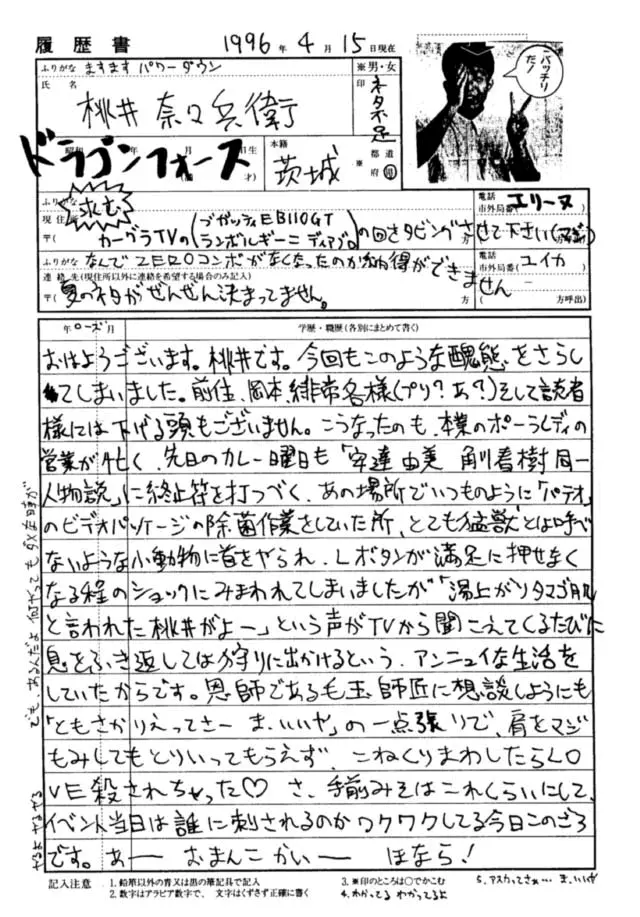 履歴書 1996年4月15日現在
ふりがな ますます パワーダウン ※男・女
氏名 桃井 奈々兵衛 印 ネタ不足
バッチリだ!
ドラゴンフォース
本籍 茨城 都道府県 ※
ふりがな 求む 電話 エリーヌ
現住所 市外局番( )
〒( カーグラTVの(ブガッティEB110GT ランボルギーニ ディアブロ)の回さタビングさせて下さい(マジ)
ふりがな なんで ZEROコンボがなくなったのか納得ができません 電話 ユイカ
連絡先(現住所以外に連絡を希望する場合のみ記入) 市外局番( )
〒( 夏のネタがぜんぜん決まってません。 方 ( 方呼出)
年 ローズ 月 学歴・職歴(各別にまとめて書く)
おはようございます。桃井です。今回もこのような醜態をさらし
てしまいました。前住、岡本、緋常各様(プリ?あ?)そして読者
様には下げる頭もございません。こうなったのも、本業のポーラレディの
営業が忙く、先日のカレー曜日も「安達由美 角川春樹 同一
人物説」に終止符を打つべく、あの場所でいつものように「パテオ」
のビデオパッケージの除菌作業をしていた所、とても猛獣とは呼べ
ないような小動物に首をやられ、Lボタンが満足に押せなく
なる程のショックにみまわれてしまいましたが「湯上がりタマゴ肌
と言われた桃井がよー」という声がTVから聞こえてくるたびに
息をふき返しては狩りに出かけるという、アンニュイな生活を
していたからです。恩師である毛玉師匠に想談しようにも
「ともさかりえってさー ま、いいや」の一点張りで、肩をマジ
もみしてもとりいってもらえず、こねくりまわしたらLO
VE殺されちゃった♡ さ、手前みそはこれくらいにして、
イベント当日は誰に刺されるのかワクワクしてる今日このごろ
です。あー おまんこ かいー ほなら!
でも、あるんだよ 何やっても ダメな時が
やるよ やるやる
記入注意 1. 鉛筆以外の青又は黒の筆記具で記入 3. ※印のところは○でかこむ 5. アスカってさぁ… ま、いいや
2. 数字はアラビア数字で、文字はくずさず正確に書く 4. わかってる わかってるよ